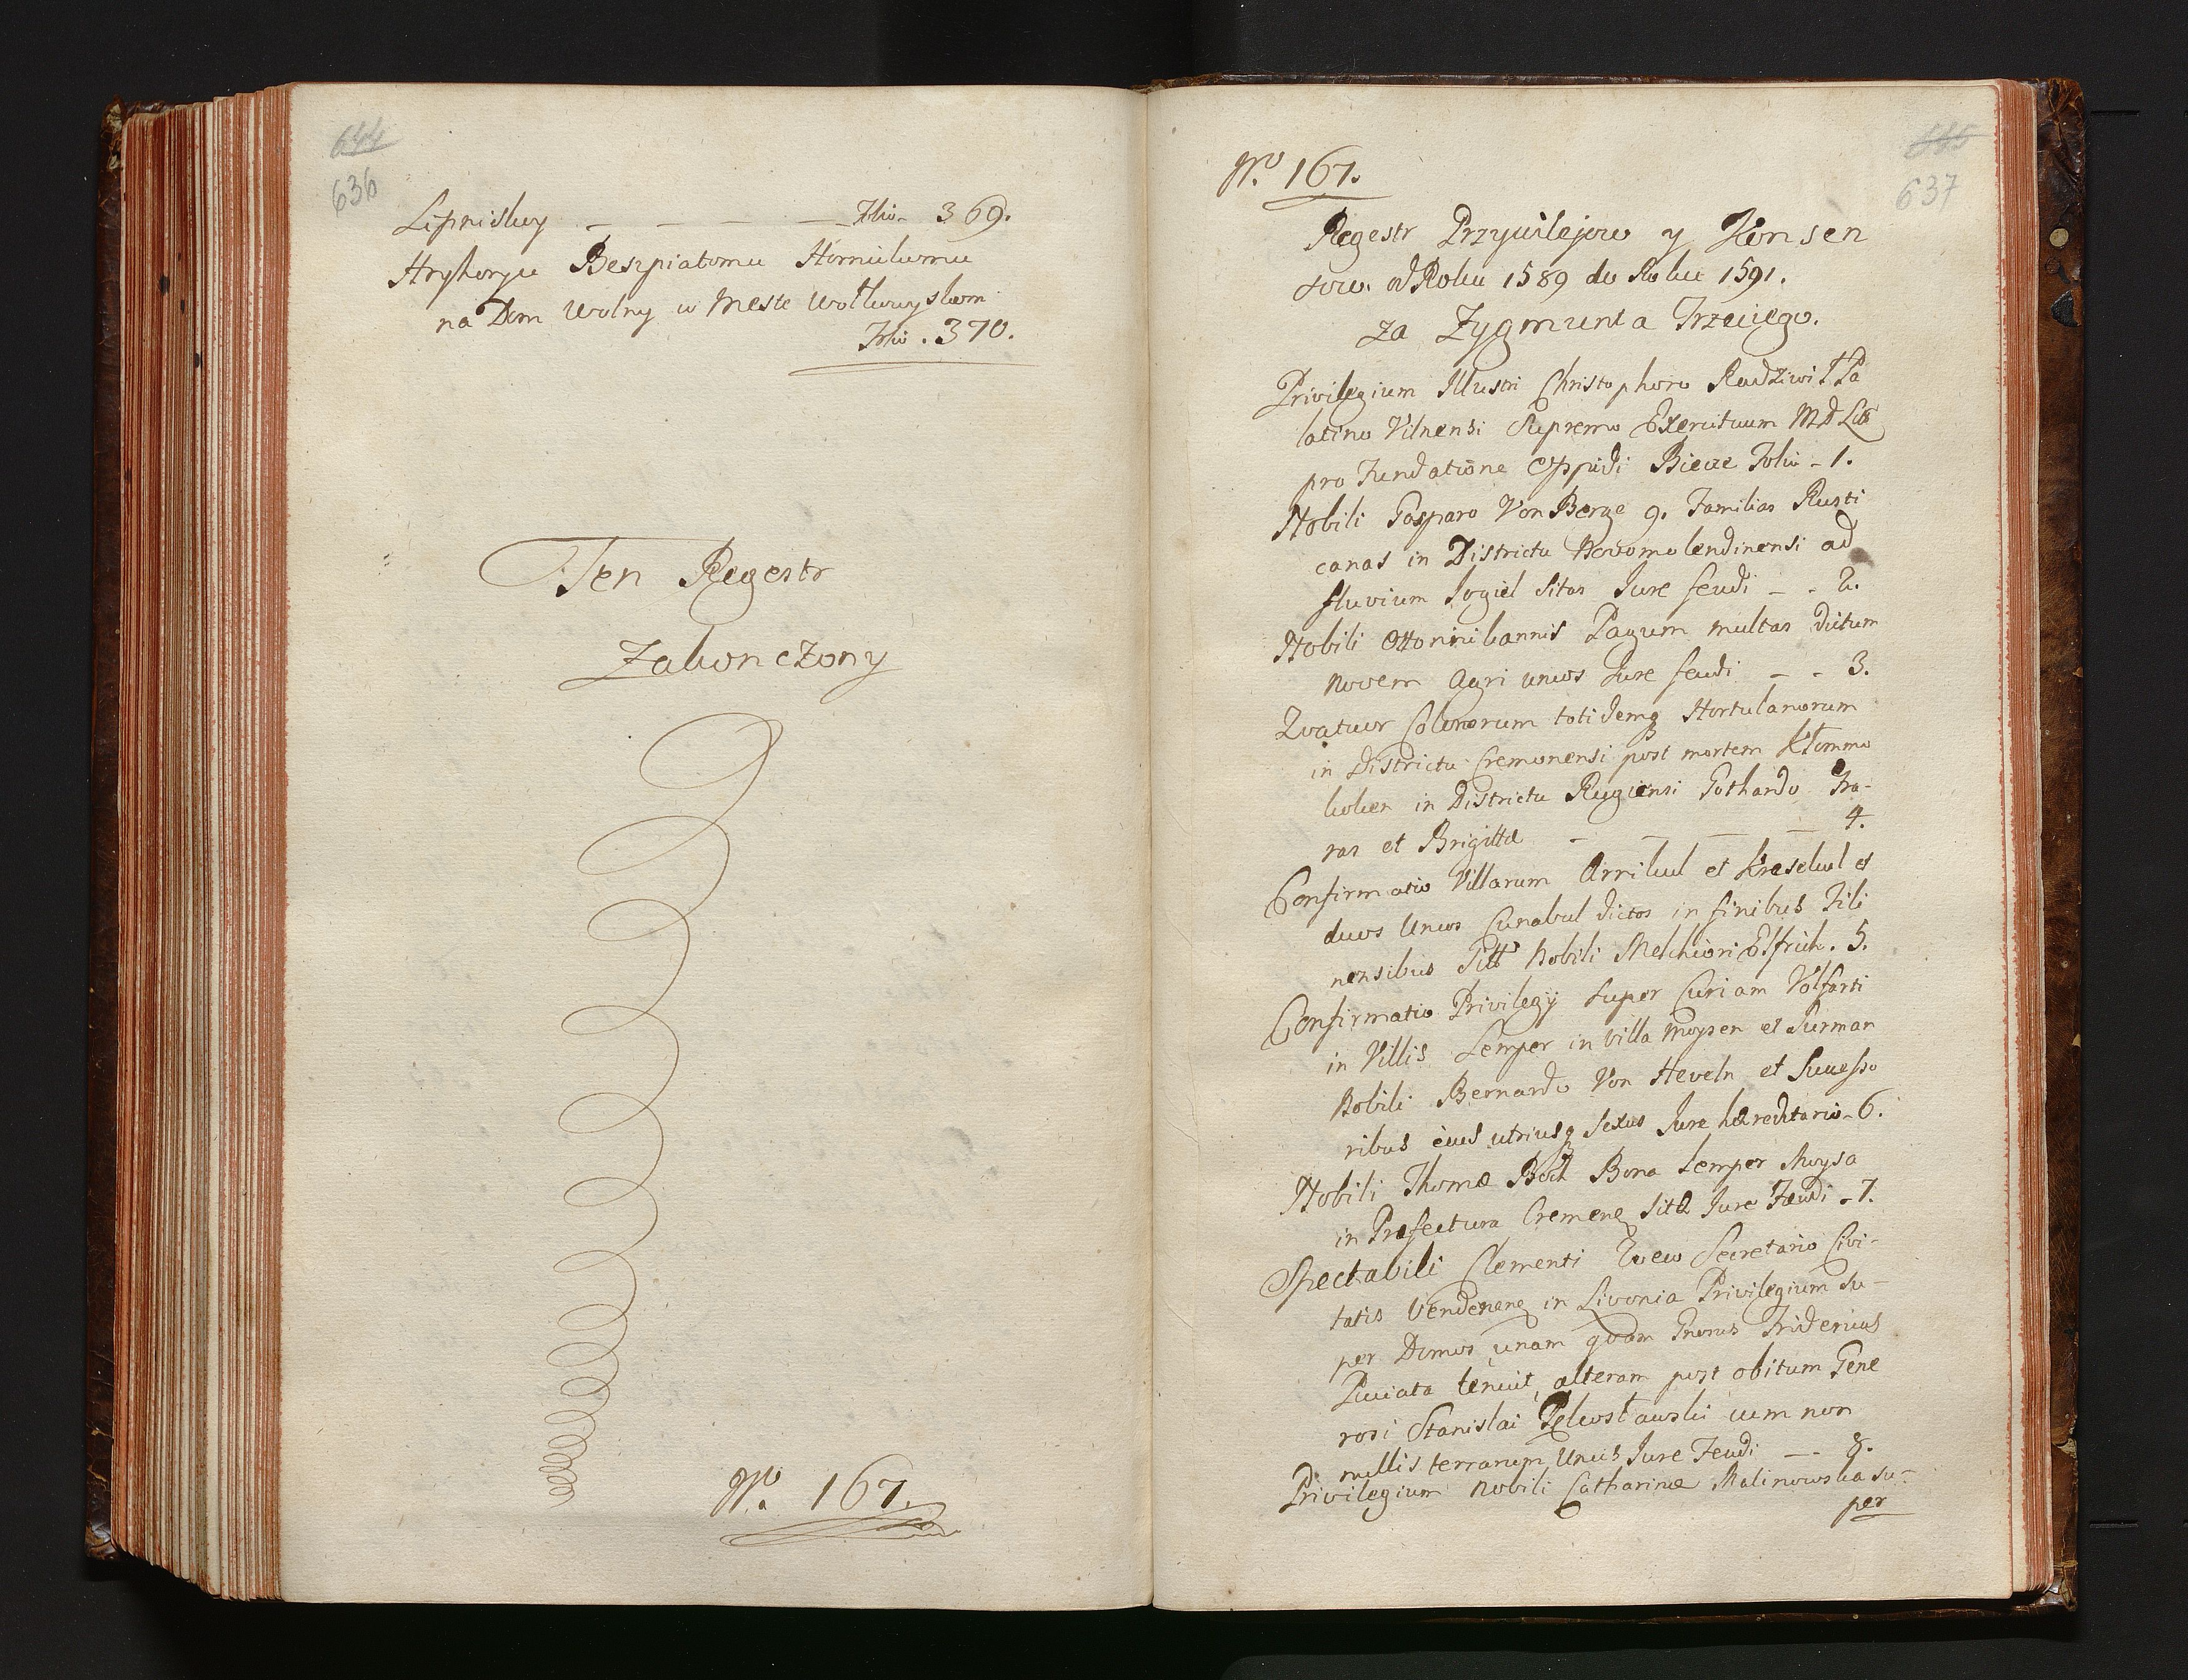 644
636
Lipniskuy — — — — Folio 369.
Hryhoryu Beszpiatomu Hornikumu
na Dom Wolny w Meste Wolkuwyskom
Folio. 370.
Ten Regestr
Zakonczony
No. 167.
645
637
No. 167.
Regestr Przywilejow y Konsen
sow. od Roku 1589 do Roku 1591.
za Zygmunta Trzeciego.
Privilegium Illustri Christophoro Radziwiłł Pa
latino Vilnensi Supremo Exercituum M D Lit
pro Fundatione Oppidi Bierze Folio - 1.
Nobili Gasparo Von Berge 9. Familias Rusti
canas in Districtu Novomolendinensi ad
fluvium Jogiel Sitas Jure feudi - - 2.
Nobili Ottoni Pagum multas dictum
novem agri uncos Jure feudi - - 3.
Quatuor Colonorum totidemq Hortulanorum
in Districtu Cremonensi post mortem Ktommo
koken in Districtu Rugiensi Gothardo Fra-
ras et Brigittæ - — — — 4.
Confirmatio Villarum Arrikul et Kraselud et
duos Uncos Cunabul dictos in finibus Fili
nensibus Sitt Nobili Melchiori Elfrich. 5.
Confirmatio Privilegÿ super Curiam Volfarti
in Villis Semper in villa Moysen et Surman
Nobili Bernardo Von Heveln et Successo
ribus eius utriusq Sexus Jure hæreditario - 6.
Nobili Thomæ Bock Bona Semper Moysa
in Præfectura Cremene Sita Jure Fæudi - 7.
Spectabili Clementi Secretario Civi-
tatis Vendenen in Livonia Privilegium Su-
per Domos unam quam Gnerus Fridericus
tenuit, alteram post obitum Gene
rosi Stanislai Pękosławski cum non
nullis terrarum Uncis Jure Feudi — - 8.
Privilegium Nobili Catharinæ Malinowska su-
per